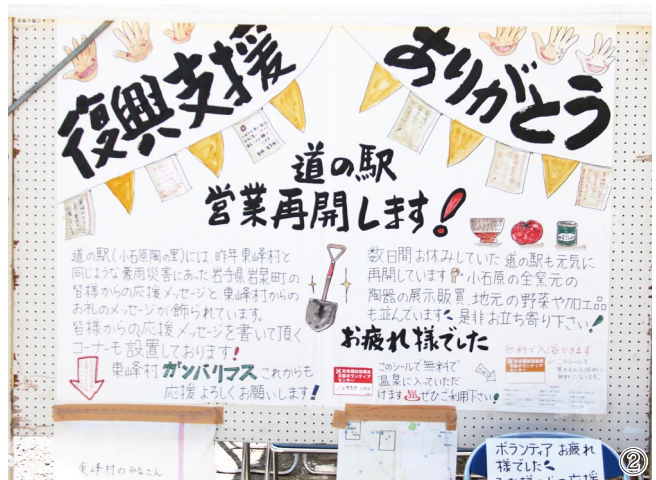 復興支援
ありがとう
道の駅
営業再開します!
道の駅(小石原陶の里)には、昨年東峰村と
同じような豪雨災害にあった岩手県岩泉町の
皆様からの応援メッセージと、東峰村からの
お礼のメッセージが飾られています。
皆様からの応援メッセージを書いて頂く
コーナーも設置しております!
東峰村 ガンバリマス これからも
応援よろしくお願いします!
数日間お休みしていた道の駅も元気に
再開しています 小石原の全窯元の
陶器の展示販買、地元の野菜や加工品
も並んでいます 是非お立ち寄り下さい!
お疲れ様でした
社会福祉協議会
災害ボランティア
センター
このシールで無料で
温泉に入っていただ
けます♨ぜひご利用下さい!
無料で入浴できます
東峰村のみなさん
ボランティア お疲れ
様でした
②